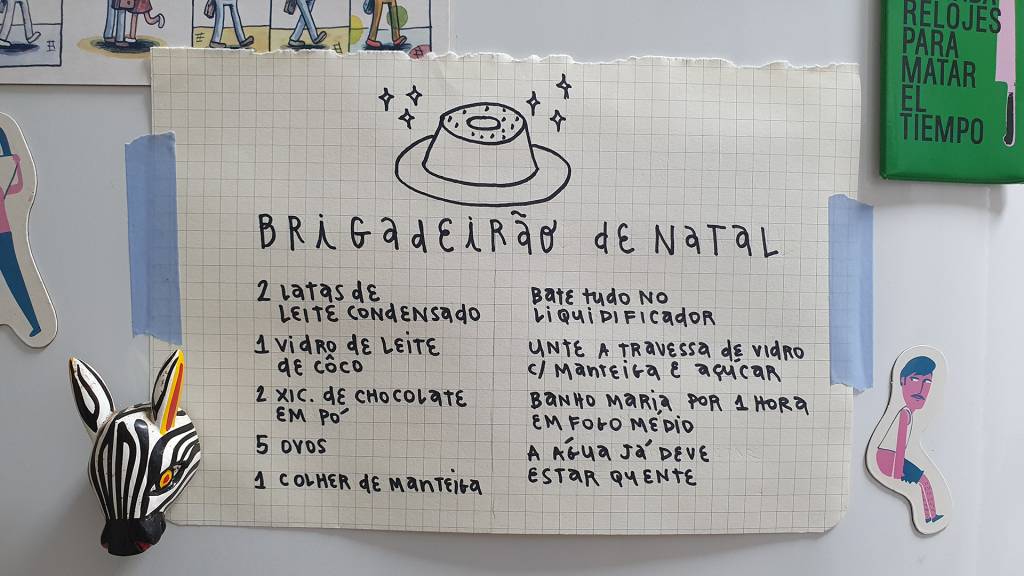 RELOJES
PARA
MATAR
EL
TIEMPO
BRIGADEIRÃO DE NATAL
2 LATAS DE
LEITE CONDENSADO
1 VIDRO DE LEITE
DE CÔCO
2 XIC. DE CHOCOLATE
EM PÓ
5 OVOS
1 COLHER DE MANTEIGA
BATE TUDO NO
LIQUIDIFICADOR
UNTE A TRAVESSA DE VIDRO
C/ MANTEIGA E AÇÚCAR
BANHO MARIA POR 1 HORA
EM FOGO MEDIO
A ÁGUA JÁ DEVE
ESTAR QUENTE